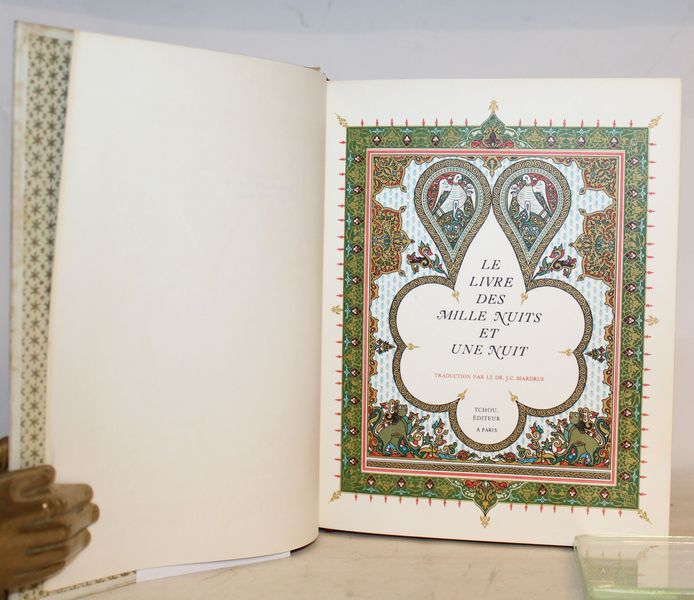 LE
LIVRE
DES
MILLE NUITS
ET
UNE NUIT
TRADUCTION PAR LE DR. J.C. MARDRUS
TCHOU,
ÉDITEUR
A PARIS